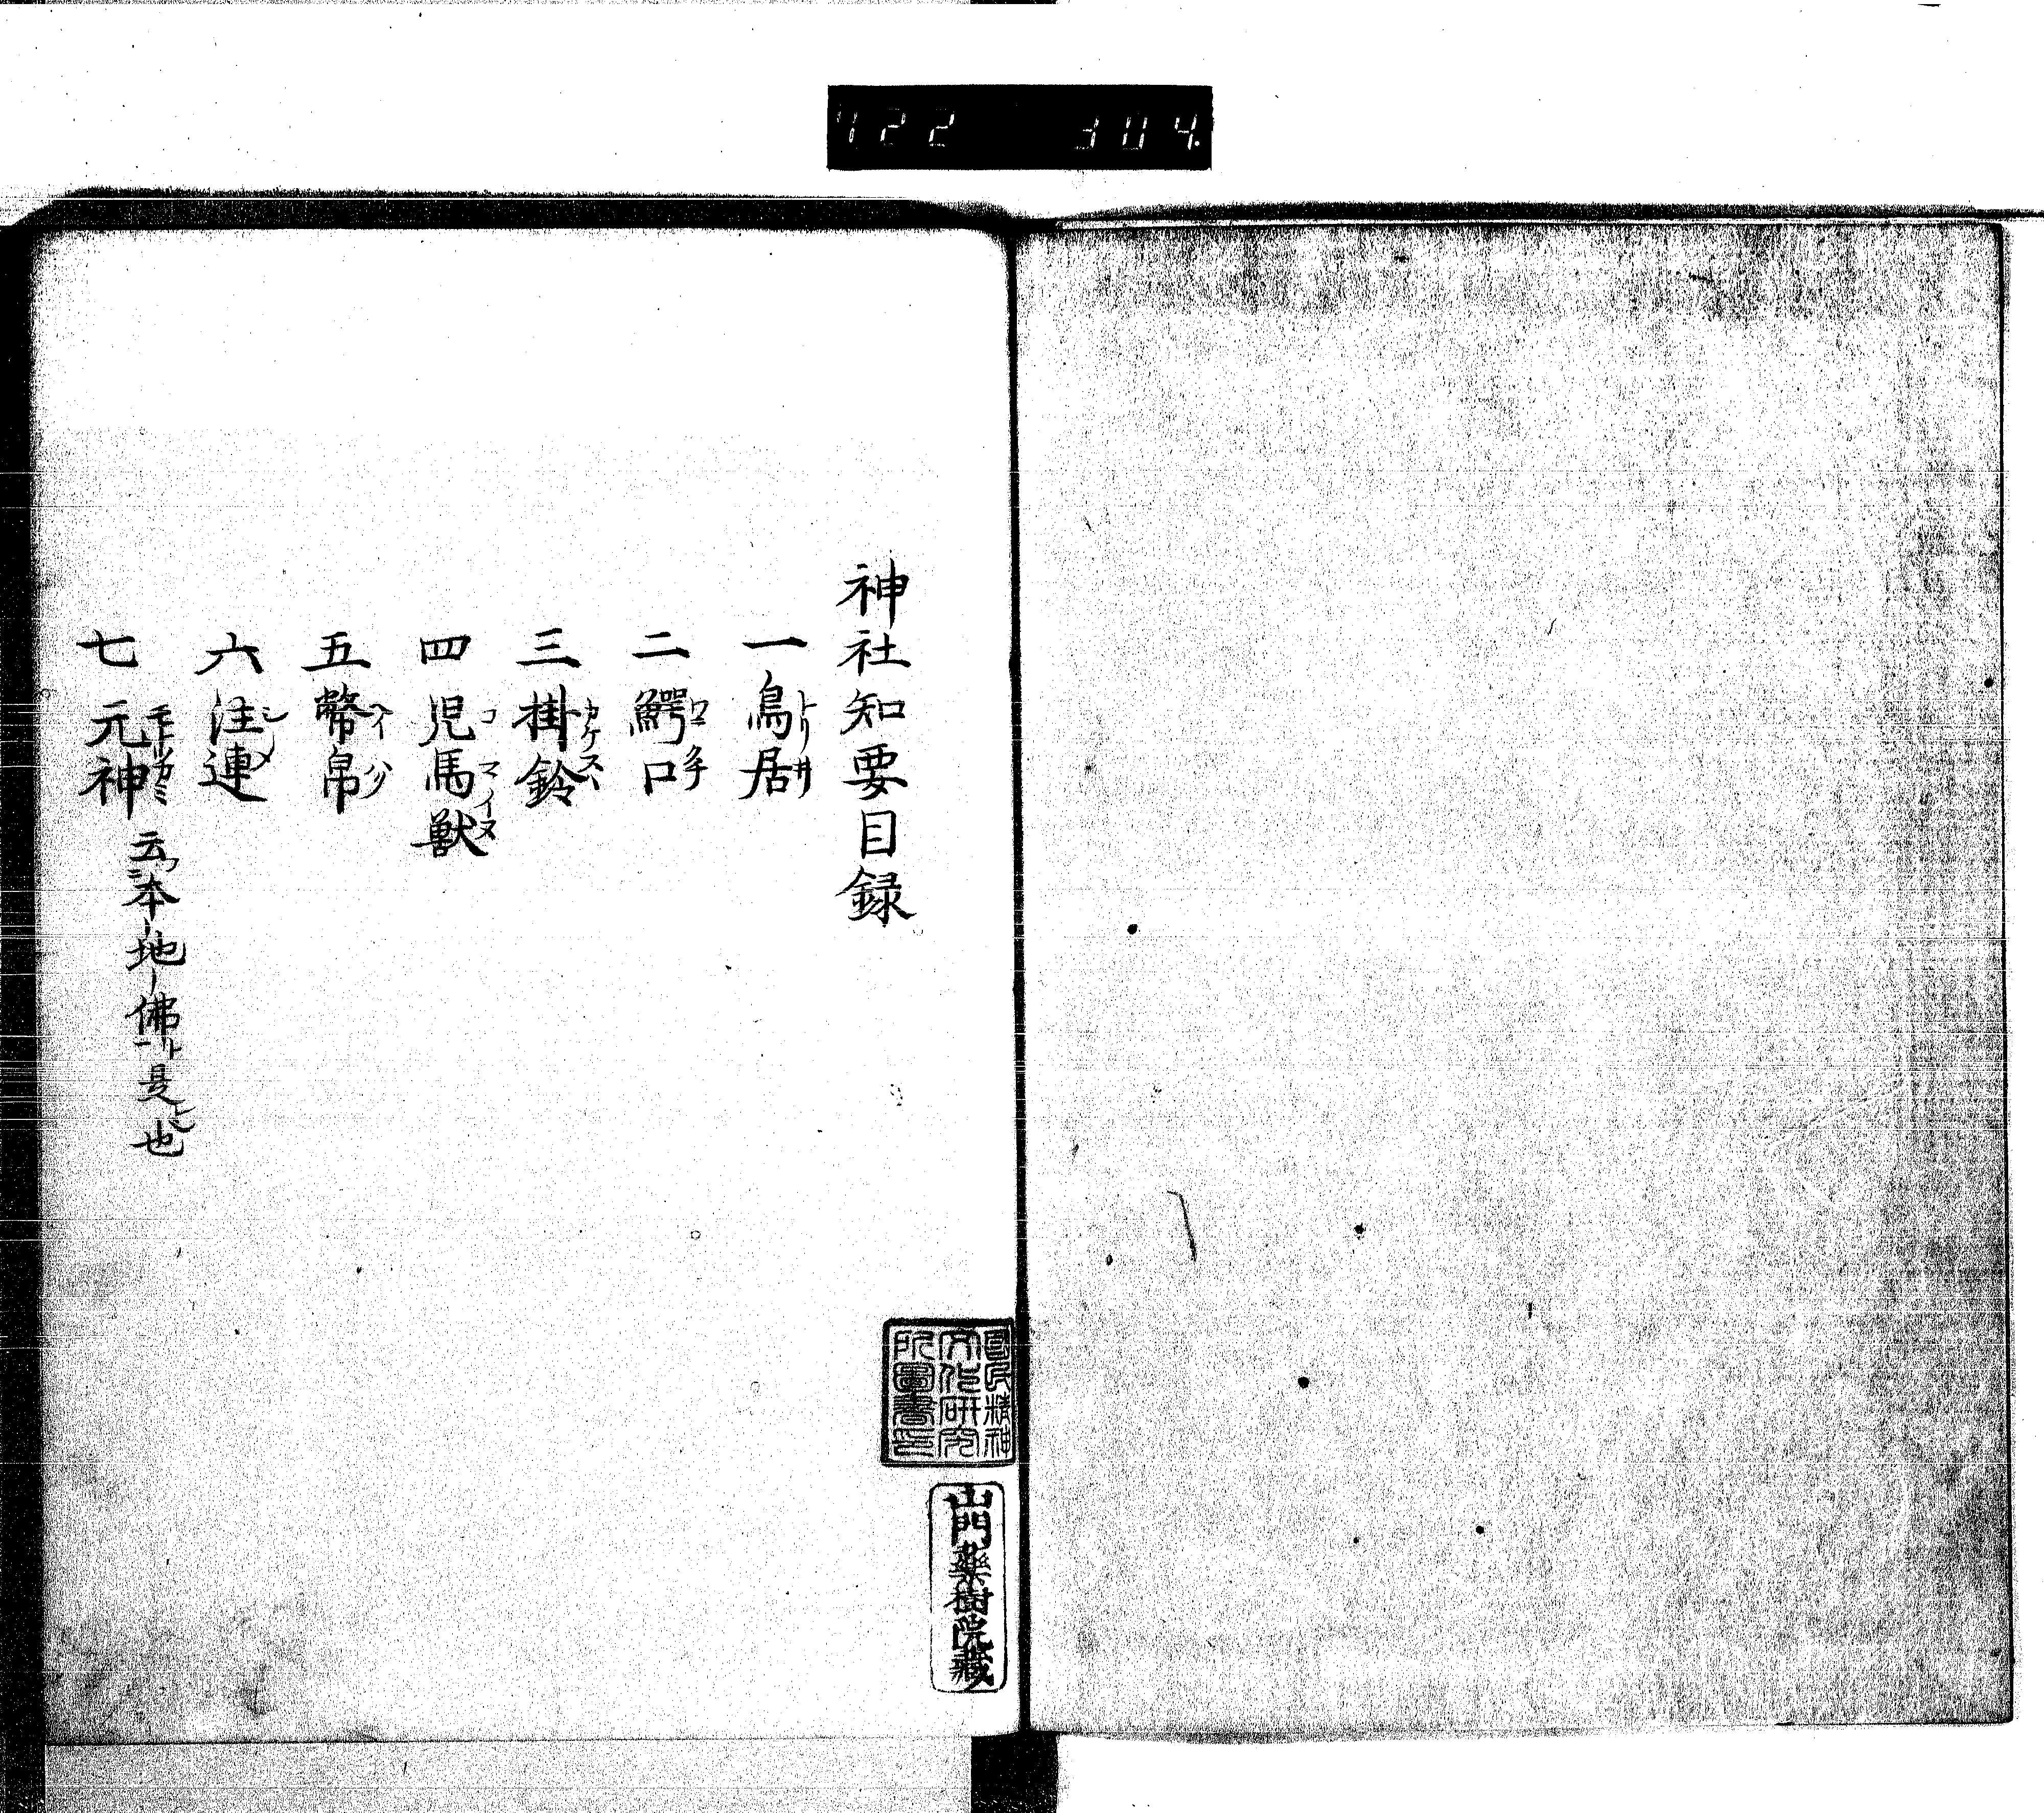 122 304.
神社知要目録
一鳥居
トリ井
二鰐口
ワニ口
三掛鈴
カケスヽ
四児馬獣
コマイヌ
五幣帛
ヘイハク
六注連
シメ
七元神云本地佛是也
モトツカミ
國民精神
文化研究
所圖書印
山門藥樹院藏